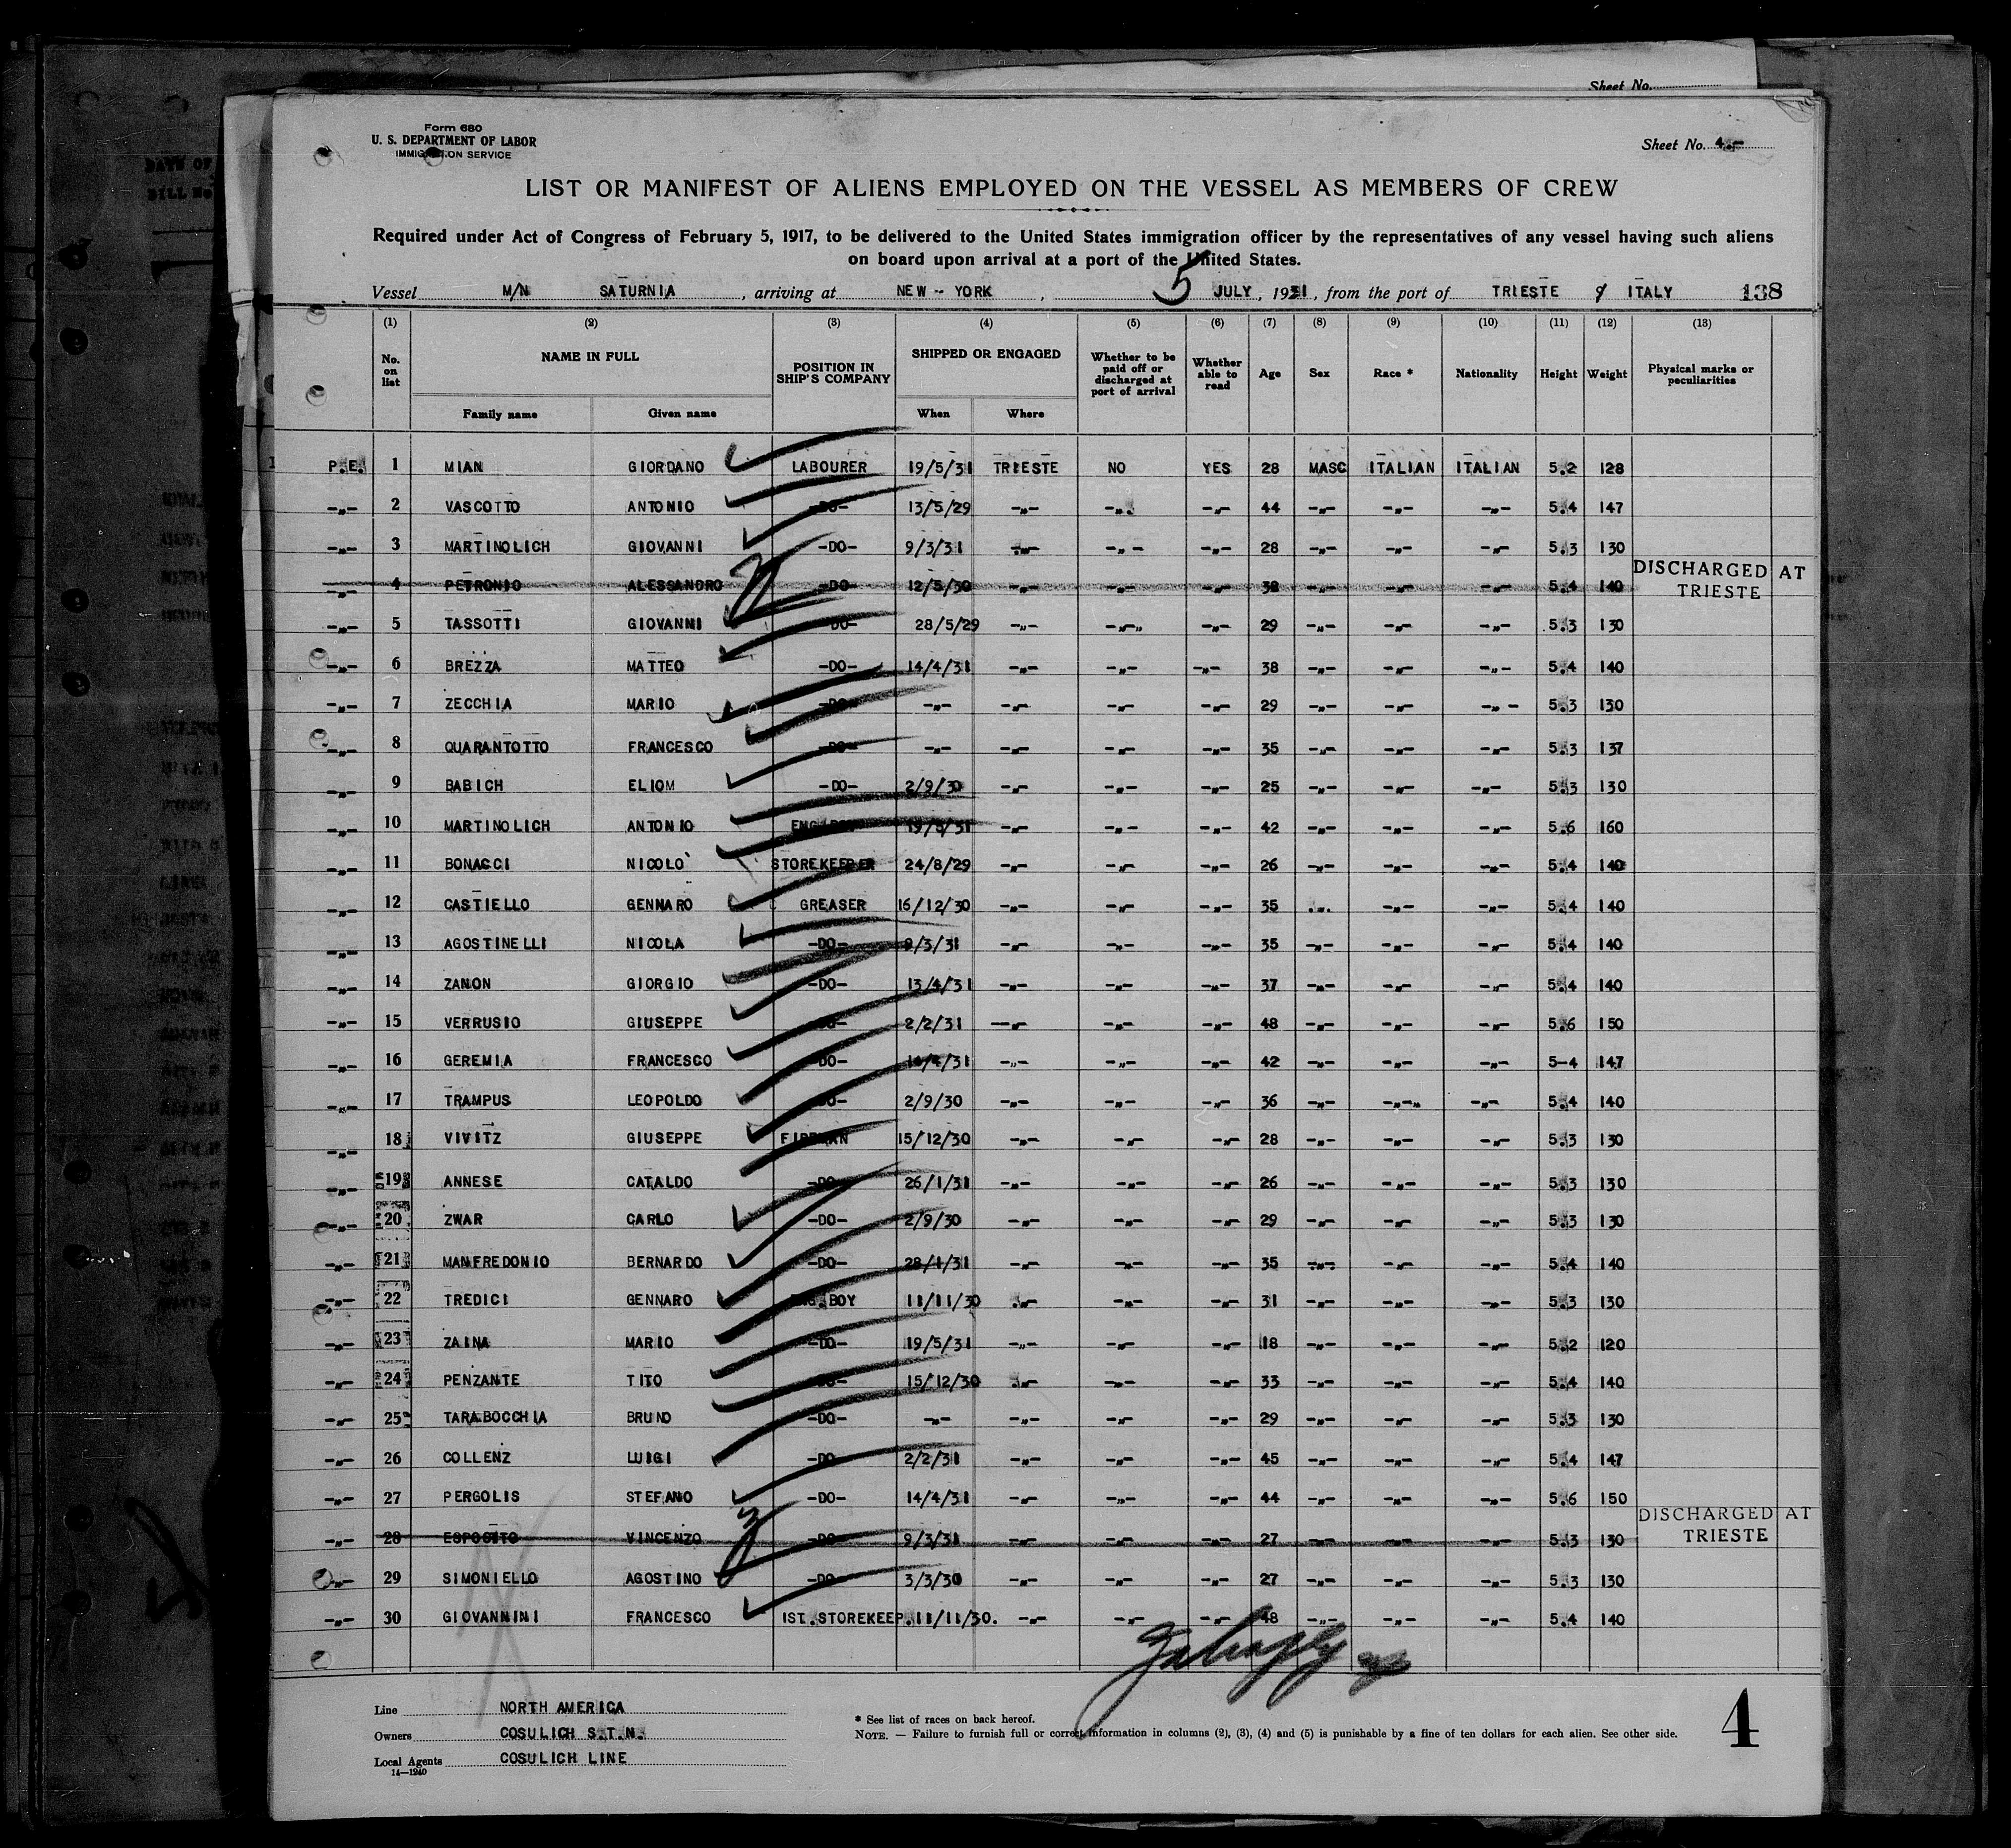 Sheet No.
Form 680
U. S. DEPARTMENT OF LABOR
IMMIGRATION SERVICE
Sheet No. 4.-
LIST OR MANIFEST OF ALIENS EMPLOYED ON THE VESSEL AS MEMBERS OF CREW
Required under Act of Congress of February 5, 1917, to be delivered to the United States immigration officer by the representatives of any vessel having such aliens
on board upon arrival at a port of the United States.
Vessel M/N SATURNIA, arriving at NEW-YORK, 5 JULY, 1931, from the port of TRIESTE ITALY 138
(1) (2) (3) (4) (5) (6) (7) (8) (9) (10) (11) (12) (13)
No. on list NAME IN FULL POSITION IN SHIP'S COMPANY SHIPPED OR ENGAGED Whether to be paid off or discharged at port of arrival Whether able to read Age Sex Race * Nationality Height Weight Physical marks or peculiarities
Family name Given name When Where
P.E. 1 MIAN GIORDANO LABOURER 19/5/31 TRIESTE NO YES 28 MASC ITALIAN ITALIAN 5.2 128
-"- 2 VASCOTTO ANTONIO -DO- 13/5/29 -"- -"- -"- 44 -"- -"- -"- 5.4 147
-"- 3 MARTINOLICH GIOVANNI -DO- 9/3/31 -"- -"- -"- 28 -"- -"- -"- 5.3 130
-"- 4 PETRONIO ALESSANDRO -DO- 12/5/30 -"- -"- -"- 38 -"- -"- -"- 5.4 140 DISCHARGED AT TRIESTE
-"- 5 TASSOTTI GIOVANNI -DO- 28/5/29 -"- -"- -"- 29 -"- -"- -"- 5.3 130
-"- 6 BREZZA MATTEO -DO- 14/4/31 -"- -"- -"- 38 -"- -"- -"- 5.4 140
-"- 7 ZECCHIA MARIO -DO- -"- -"- -"- -"- 29 -"- -"- -"- 5.3 130
-"- 8 QUARANTOTTO FRANCESCO -DO- -"- -"- -"- -"- 35 -"- -"- -"- 5.3 137
-"- 9 BABICH ELIOM -DO- 2/9/30 -"- -"- -"- 25 -"- -"- -"- 5.3 130
-"- 10 MARTINOLICH ANTONIO 19/5/31 -"- -"- -"- 42 -"- -"- -"- 5.6 160
-"- 11 BONACCI NICOLO' STOREKEEPER 24/8/29 -"- -"- -"- 26 -"- -"- -"- 5.4 140
-"- 12 CASTIELLO GENNARO GREASER 16/12/30 -"- -"- -"- 35 -"- -"- -"- 5.4 140
-"- 13 AGOSTINELLI NICOLA -DO- 9/3/31 -"- -"- -"- 35 -"- -"- -"- 5.4 140
-"- 14 ZANON GIORGIO -DO- 13/4/31 -"- -"- -"- 37 -"- -"- -"- 5.4 140
-"- 15 VERRUSIO GIUSEPPE -DO- 2/2/31 -"- -"- -"- 48 -"- -"- -"- 5.6 150
-"- 16 GEREMIA FRANCESCO -DO- 14/4/31 -"- -"- -"- 42 -"- -"- -"- 5-4 147
-"- 17 TRAMPUS LEOPOLDO -DO- 2/9/30 -"- -"- -"- 36 -"- -"- -"- 5.4 140
-"- 18 VIVITZ GIUSEPPE FIREMAN 15/12/30 -"- -"- -"- 28 -"- -"- -"- 5.3 130
-"- 19 ANNESE CATALDO -DO- 26/1/31 -"- -"- -"- 26 -"- -"- -"- 5.3 130
-"- 20 ZWAR CARLO -DO- 2/9/30 -"- -"- -"- 29 -"- -"- -"- 5.3 130
-"- 21 MANFREDONIO BERNARDO -DO- 28/1/31 -"- -"- -"- 35 -"- -"- -"- 5.4 140
-"- 22 TREDICI GENNARO ENG.BOY 11/11/30 -"- -"- -"- 31 -"- -"- -"- 5.3 130
-"- 23 ZAINA MARIO -DO- 19/5/31 -"- -"- -"- 18 -"- -"- -"- 5.2 120
-"- 24 PENZANTE TITO -DO- 15/12/30 -"- -"- -"- 33 -"- -"- -"- 5.4 140
-"- 25 TARABOCCHIA BRUNO -DO- -"- -"- -"- -"- 29 -"- -"- -"- 5.3 130
-"- 26 COLLENZ LUIGI -DO- 2/2/31 -"- -"- -"- 45 -"- -"- -"- 5.4 147
-"- 27 PERGOLIS STEFANO -DO- 14/4/31 -"- -"- -"- 44 -"- -"- -"- 5.6 150
-"- 28 ESPOSITO VINCENZO -DO- 9/3/31 -"- -"- -"- 27 -"- -"- -"- 5.3 130 DISCHARGED AT TRIESTE
-"- 29 SIMONIELLO AGOSTINO -DO- 3/3/30 -"- -"- -"- 27 -"- -"- -"- 5.3 130
-"- 30 GIOVANNINI FRANCESCO 1ST.STOREKEEP. 11/11/30. -"- -"- -"- 48 -"- -"- -"- 5.4 140
Line NORTH AMERICA
Owners COSULICH S.T.N.
Local Agents COSULICH LINE
14—1240
* See list of races on back hereof.
NOTE. — Failure to furnish full or correct information in columns (2), (3), (4) and (5) is punishable by a fine of ten dollars for each alien. See other side.
4